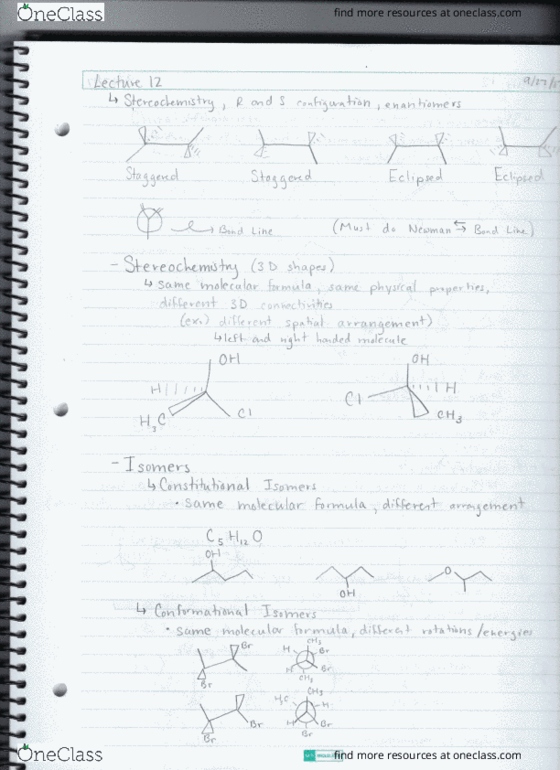 OneClass
find more resources at oneclass.com
Lecture 12
↳ Stereochemistry, R and S configuration, enantiomers
Staggered Staggered Eclipsed Eclipsed
→ Bond Line (Must do Newman ⇆ Bond Line)
- Stereochemistry (3D shapes)
↳ same molecular formula, same physical properties,
different 3D connectivities
(ex.) different spatial arrangement)
↳ left and right handed molecule
OH OH
H Cl H
H3C Cl CH3
- Isomers
↳ Constitutional Isomers
• same molecular formula, different arrangement
C5H12O
OH
O
OH
↳ Conformational Isomers
• same molecular formula, different rotations/energies
Br CH3
H Br
H
Br CH3
H3C CH3
H
Br H Br
Br Br
OneClass
find more resources at oneclass.com